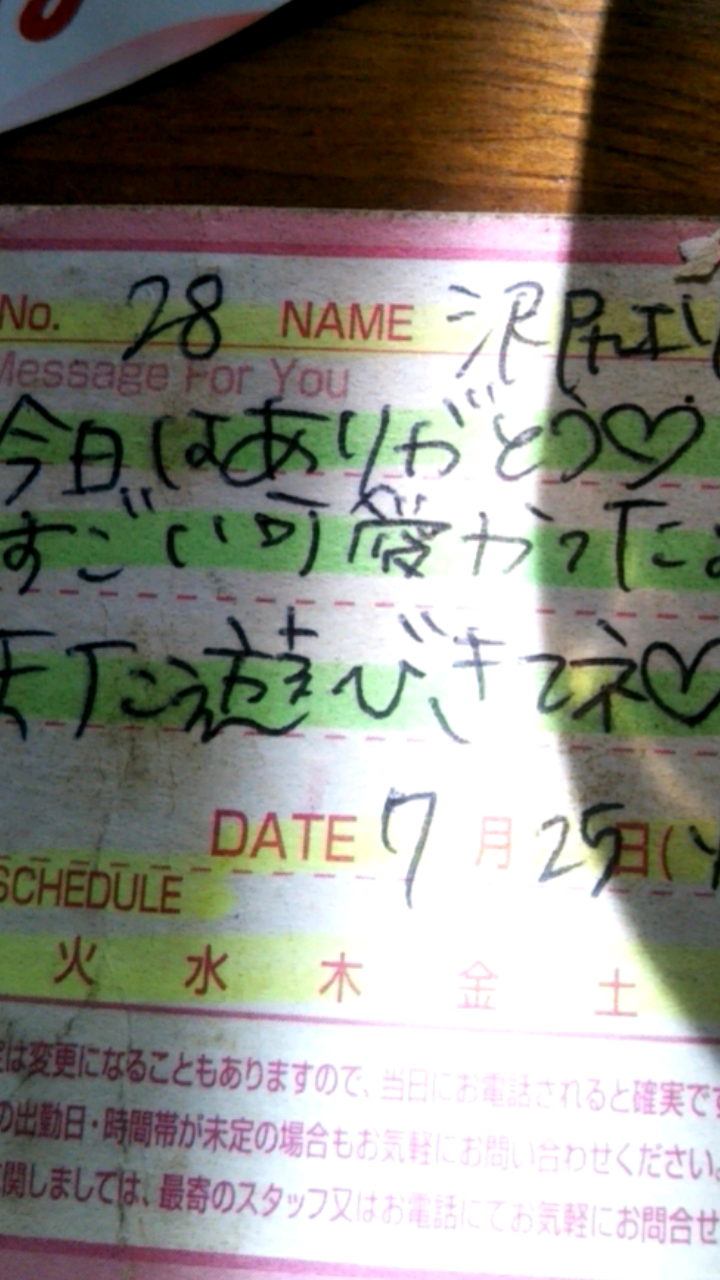 No. 28 NAME 沢尻エリ
Message For You
今日はありがとう♡
すごい可愛かったよ
またえ遊びきてネ♡
DATE 7月25日(
SCHEDULE
火 水 木 金 土
定は変更になることもありますので、当日にお電話されると確実です
の出勤日・時間帯が未定の場合もお気軽にお問い合わせください。
に関しましては、最寄のスタッフ又はお電話にてお気軽にお問合せ